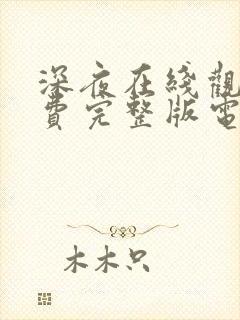 深夜在线觀
費完整版電
木木只